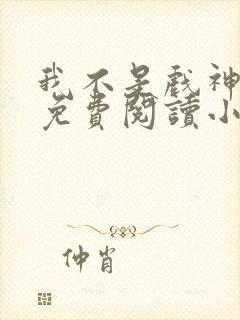 我不是戲神
免費閱讀小
仲肯